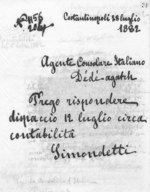 Costantinopoli 28 luglio
1882
Agente Consolare Italiano
Dédé-agatch
Prego rispondere
dispaccio 12 luglio circa
contabilità
Simondetti